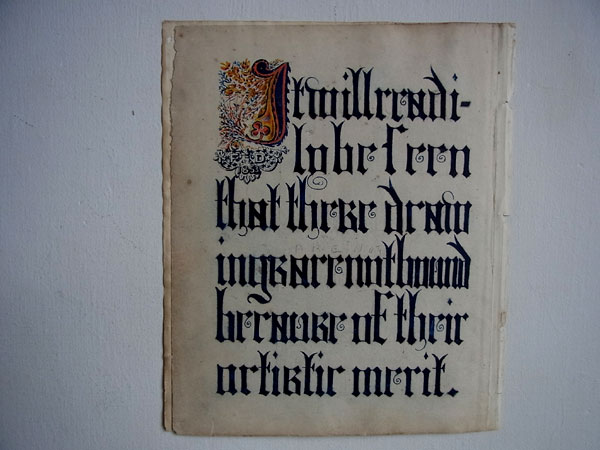 It will readi-
ly be seen
that these draw
ings are not bound
because of their
artistic merit.